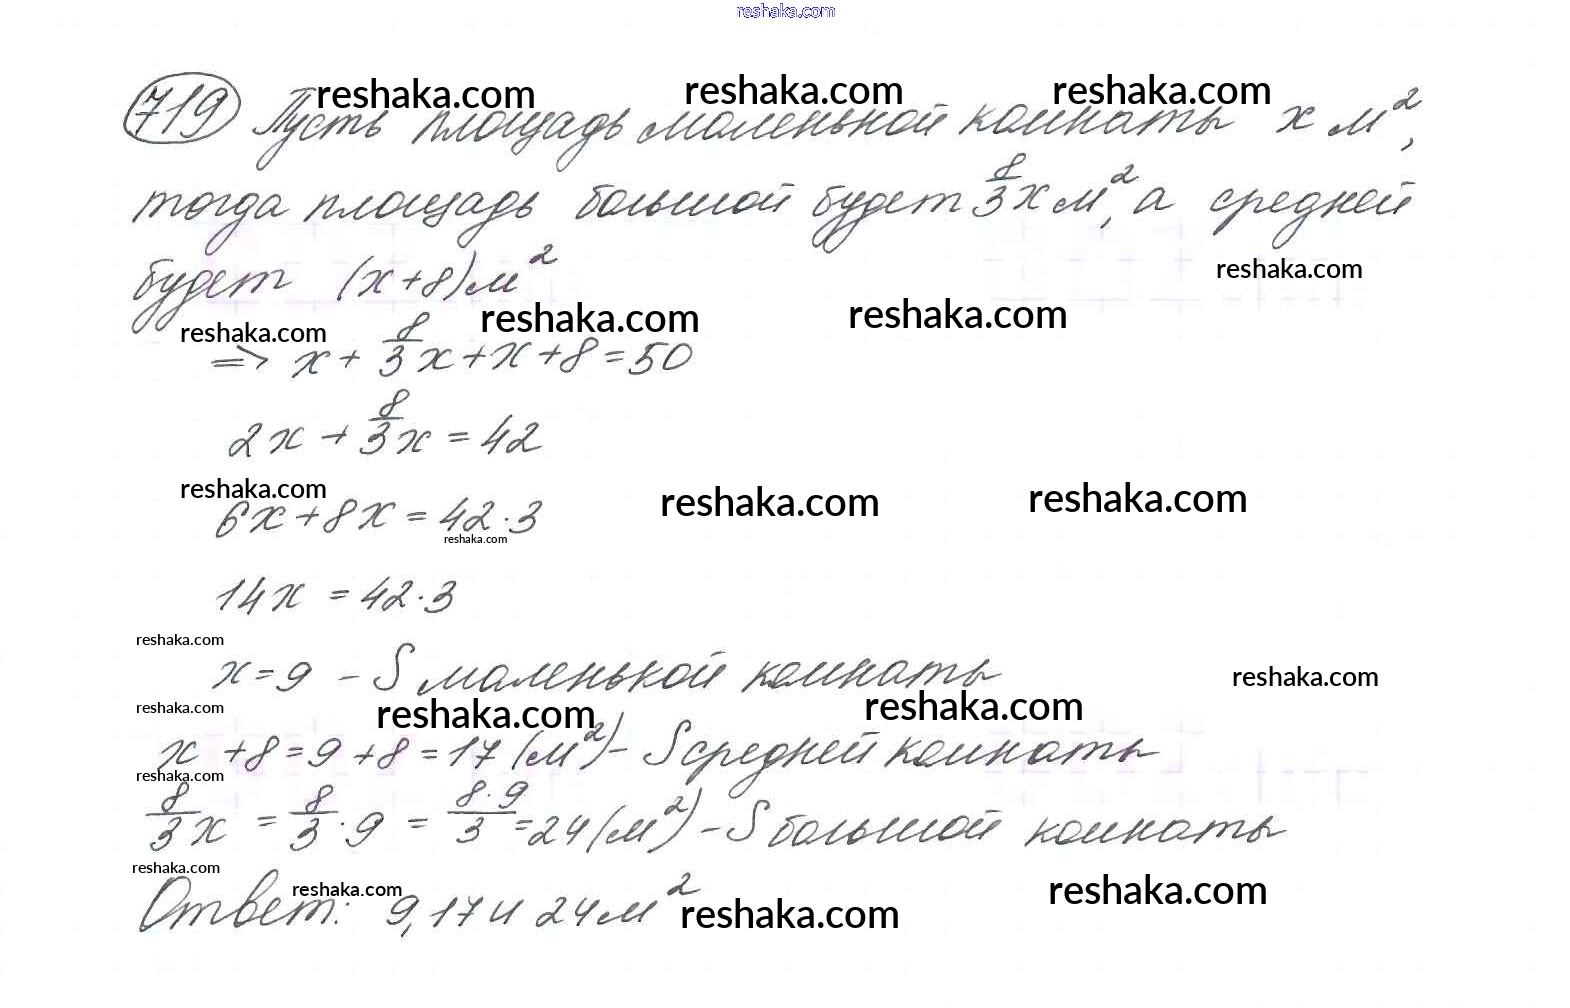 reshaka.com
reshaka.com reshaka.com reshaka.com
719 Пусть площадь маленькой комнаты x м²,
тогда площадь большой будет 8/3 x м², а средней
reshaka.com
будет (x+8) м²
reshaka.com reshaka.com reshaka.com
=> x + 8/3 x + x + 8 = 50
2x + 8/3 x = 42
reshaka.com reshaka.com reshaka.com
6x + 8x = 42·3
reshaka.com
14x = 42·3
reshaka.com
x = 9 – S маленькой комнаты
reshaka.com
reshaka.com reshaka.com reshaka.com
x + 8 = 9 + 8 = 17 (м²) – S средней комнаты
reshaka.com
8/3 x = 8/3 · 9 = 8·9/3 = 24 (м²) – S большой комнаты
reshaka.com
reshaka.com reshaka.com
Ответ: 9, 17 и 24 м²
reshaka.com